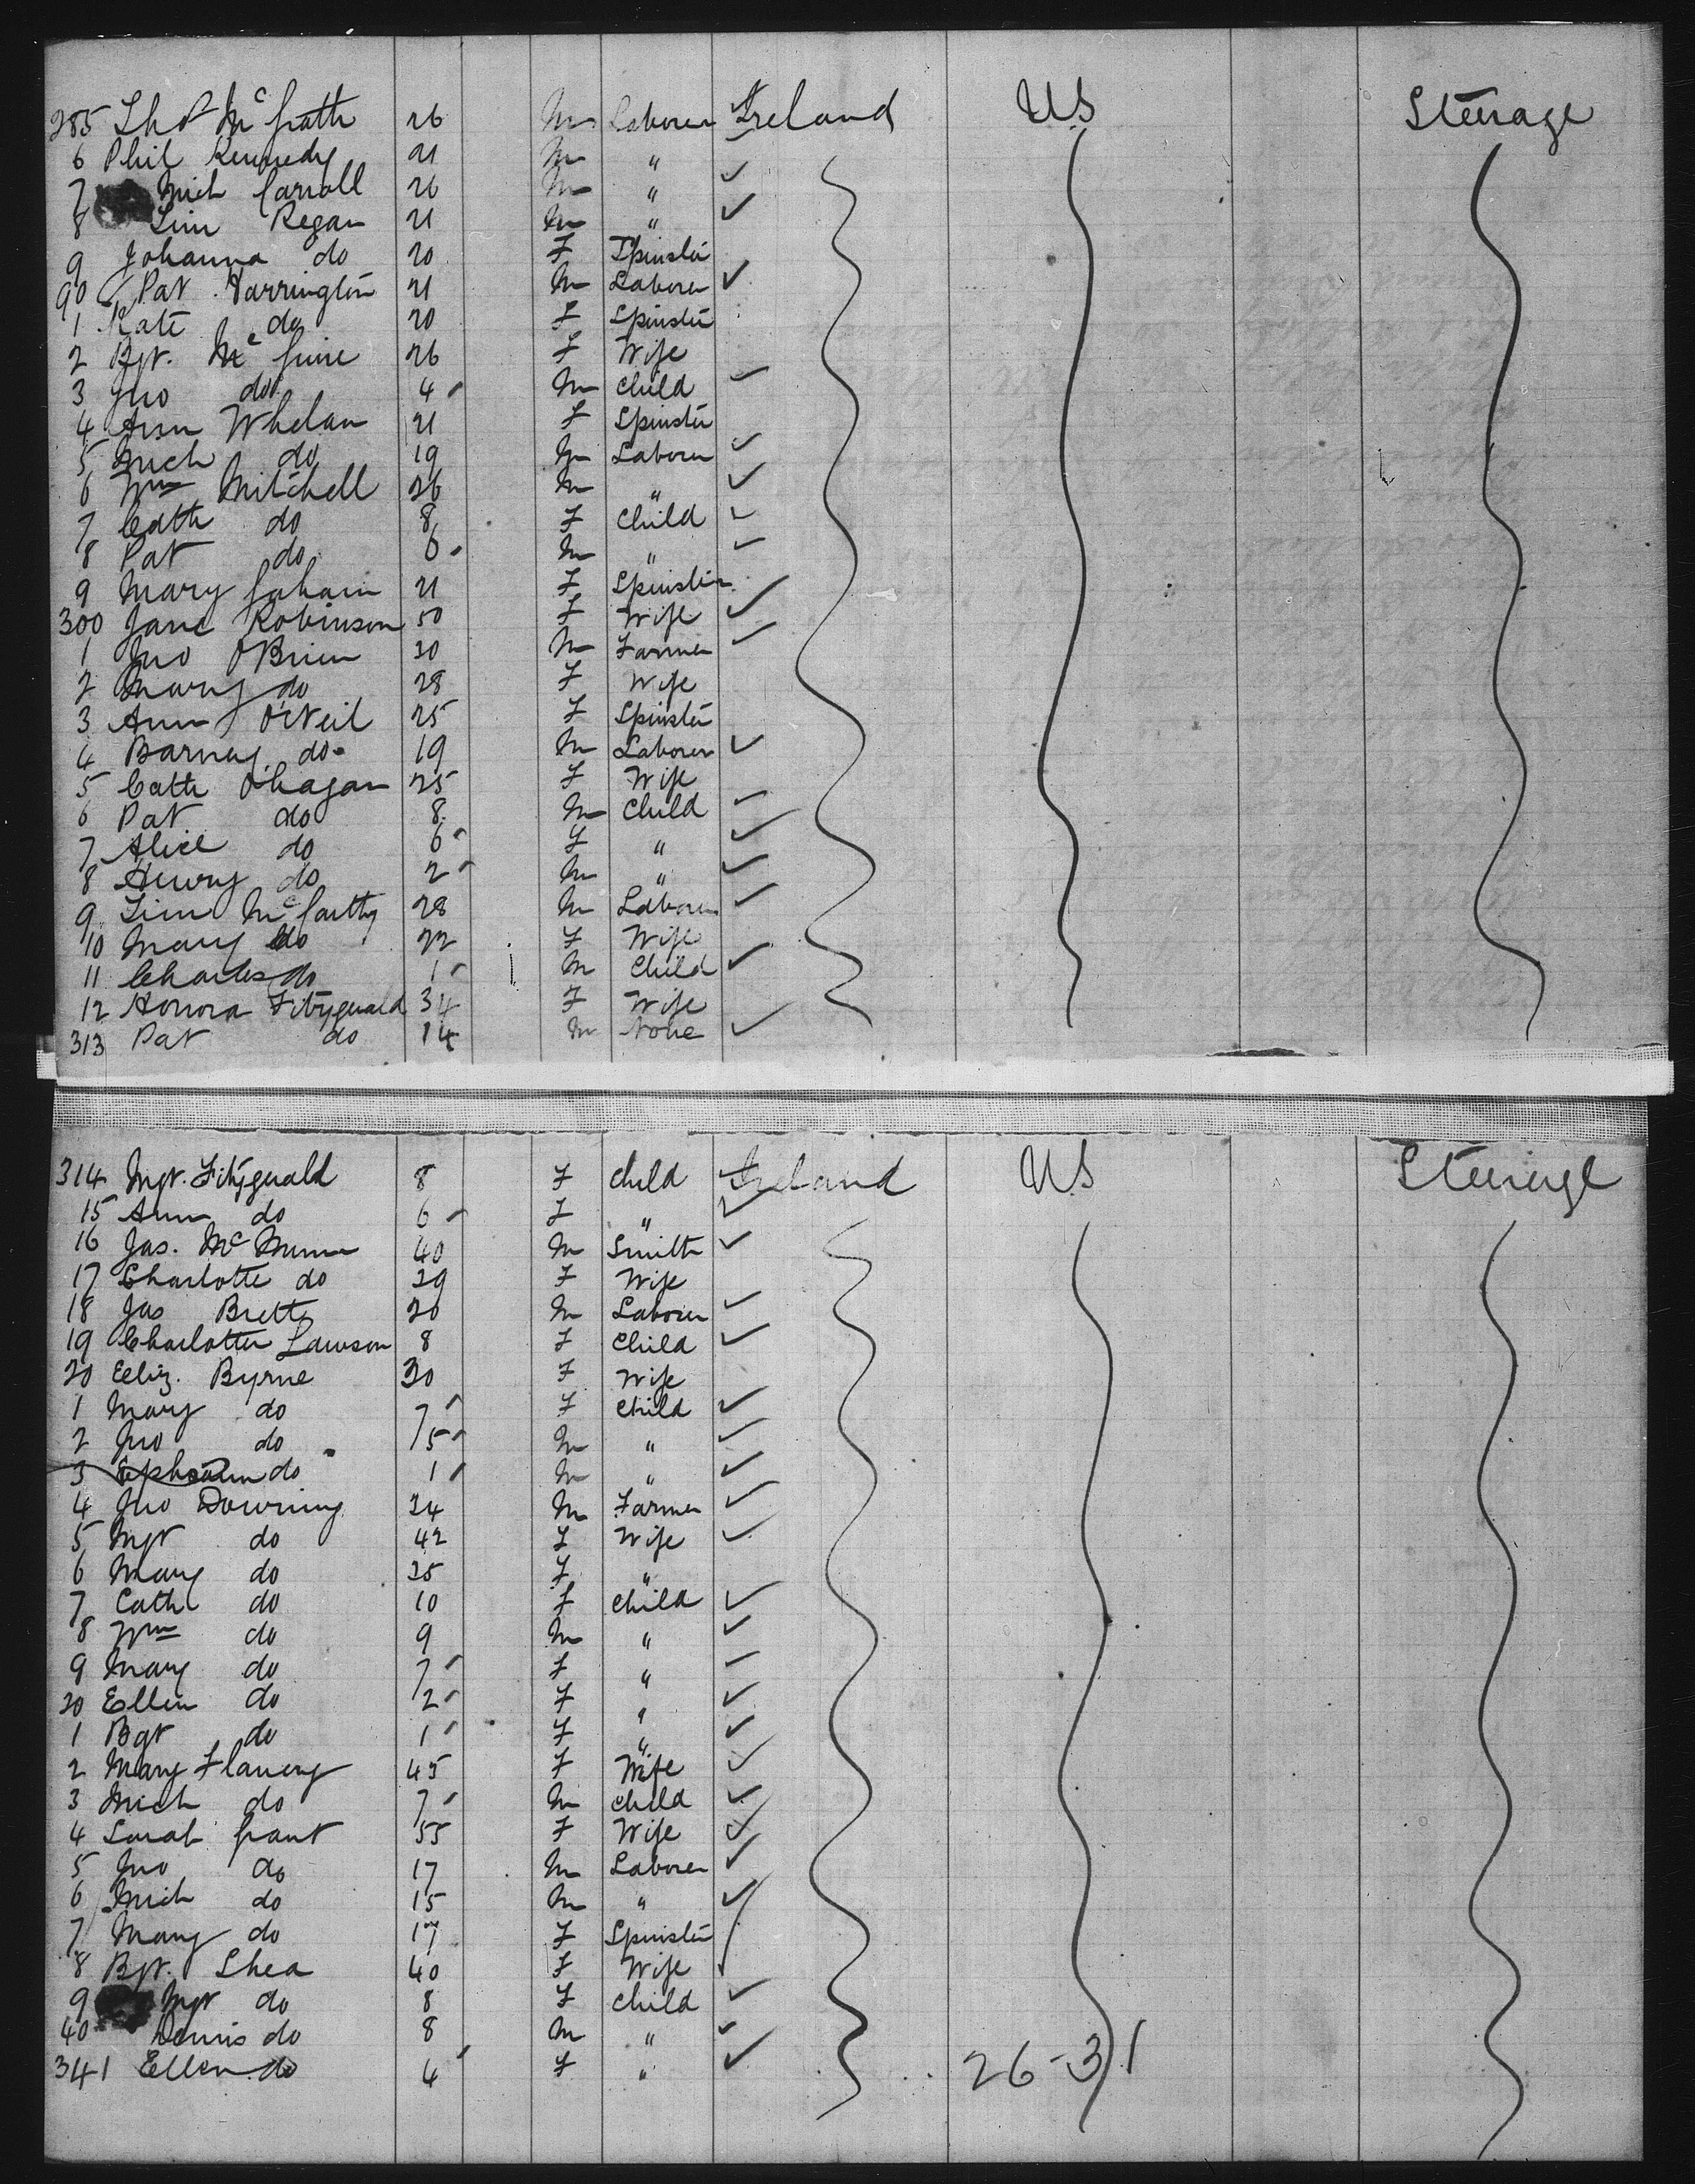 285 Thos McGrath 26 M Laborer Ireland US Steerage
6 Phil Kennedy 21 M "
7 Mich Carroll 26 M "
8 Tim Regan 21 M "
9 Johanna do 20 F Spinster
90 Pat Harrington 21 M Laborer
1 Kate do 20 F Spinster
2 Bgt. McGuire 26 F Wife
3 Jno do 4 M Child
4 Ann Whelan 21 F Spinster
5 Mich do 19 M Laborer
6 Wm Mitchell 26 M "
7 Cath do 8 F Child
8 Pat do 6 M "
9 Mary Gahain 21 F Spinster
300 Jane Robinson 50 F Wife
1 Jno O'Brien 30 M Farmer
2 Mary do 28 F Wife
3 Ann O'Neil 25 F Spinster
4 Barney do 19 M Laborer
5 Cath O'Hagan 25 F Wife
6 Pat do 8 M Child
7 Alice do 6 F "
8 Henry do 2 M "
9 Tim McCarthy 28 M Laborer
10 Mary do 22 F Wife
11 Charles do 1 M Child
12 Honora Fitzgerald 34 F Wife
313 Pat do 14 M None
314 Mgt. Fitzgerald 8 F Child Ireland US Steerage
15 Ann do 6 F "
16 Jas. McMunn 40 M Smith
17 Charlotte do 39 F Wife
18 Jas Brett 20 M Laborer
19 Charlotte Lawson 8 F Child
20 Eliz. Byrne 30 F Wife
1 Mary do 7 F Child
2 Jno do 5 M "
3 Ephraim do 1 M "
4 Jno Downing 34 M Farmer
5 Mgt do 42 F Wife
6 Mary do 35 F "
7 Cath do 10 F Child
8 Wm do 9 M "
9 Mary do 7 F "
30 Ellen do 2 F "
1 Bgt do 1 F "
2 Mary Flanery 45 F Wife
3 Mich do 7 M Child
4 Sarah Grant 55 F Wife
5 Jno do 17 M Laborer
6 Mich do 15 M "
7 Mary do 17 F Spinster
8 Bgt. Shea 40 F Wife
9 Mgt do 8 F Child
40 Dennis do 8 M "
341 Ellen do 4 F " 26-31